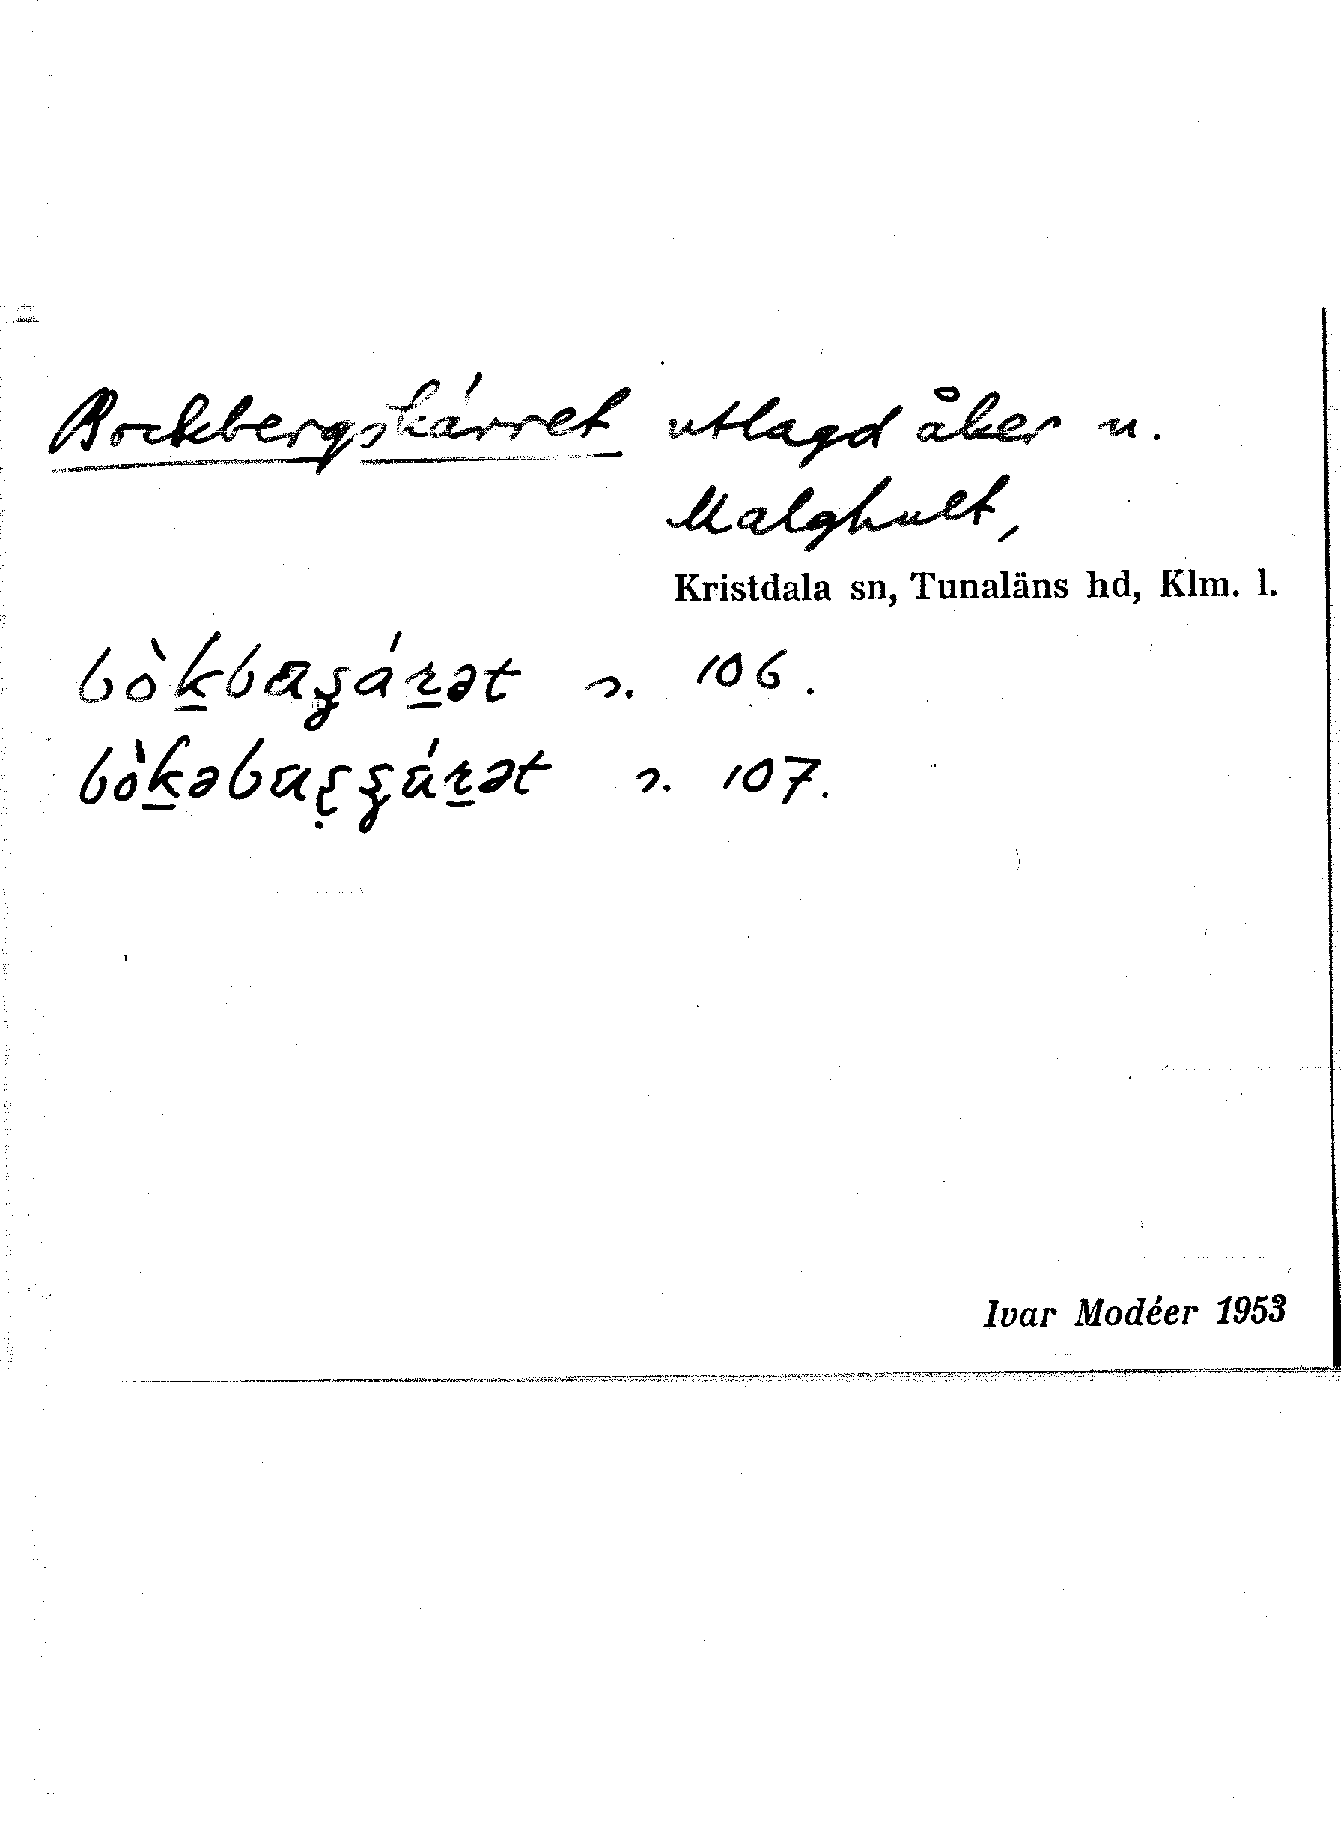 Bockbergskärret utlagd åker u.
Malghult,
Kristdala sn, Tunaläns hd, Klm. l.
s. 106.
s. 107.
Ivar Modéer 1953